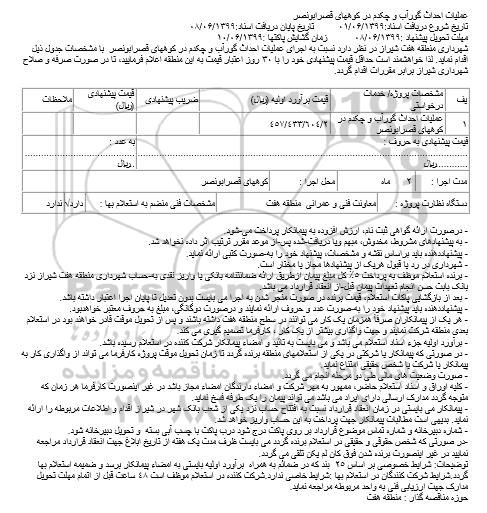 عملیات احداث گورآب و چکدم در کوههای قصرابونصر
تاریخ شروع دریافت اسناد:۰۱/۰۶/۱۳۹۹ تاریخ پایان دریافت اسناد:۰۸/۰۶/۱۳۹۹
مهلت تحویل پیشنهاد :۰۸/۰۶/۱۳۹۹ زمان گشایش پاکتها :۱۰/۰۶/۱۳۹۹
شهرداری منطقه هفت شیراز در نظر دارد نسبت به اجرای عملیات احداث گورآب و چکدم در کوههای قصرابونصر با مشخصات جدول ذیل
اقدام نماید. لذا خواهشمند است حداقل قیمت پیشنهادی خود را با ۳۰ روز اعتبار قیمت به این منطقه اعلام فرمایید، تا در صورت صرفه و صلاح
شهرداری شیراز برابر مقررات اقدام گردد.
یف مشخصات پروژه/ خدمات درخواستی قیمت برآورد اولیه (ریال) ضریب پیشنهادی قیمت پیشنهادی (ریال) ملاحظات
۱ عملیات احداث گورآب و چکدم در کوههای قصرابونصر ۴۵۷/۴۳۳/۶۰۴/۲
قیمت پیشنهادی به حروف : به عدد :
ریال ریال.
مدت اجرا : ۲ ماه محل اجرا : کوههای قصرابونصر
دستگاه نظارت پروژه : معاونت فنی و عمرانی منطقه هفت مشخصات فنی منضم به استعلام بها : دارد/√ ندارد
- درصورت ارائه گواهی ثبت نام، ارزش افزوده به پیمانکار پرداخت می‌شود.
- به پیشنهادهای مشروط، مخدوش، مبهم ویا دریافت‌شده پس‌از موعد مقرر ترتیب اثر داده نخواهد شد.
- پیشنهاددهنده باید براساس نقشه و مشخصات، پیشنهاد خود را به‌صورت کتبی ارائه نماید.
- شهرداری در رد یا قبول هریک از پیشنهادها مجاز یا مختار است.
- برنده استعلام موظف به پرداخت ۵٪ کل مبلغ پیمان ازطریق ارائه ضمانتنامه بانکی یا واریز نقدی به‌حساب شهرداری منطقه هفت شیراز نزد
بانک بابت حسن انجام تعهدات پیمان قبل‌از انعقاد قرارداد می باشد.
- بعد از بازگشایی پاکات استعلام، قیمت برنده در صورت منجر شدن به اجرا می بایست بدون تعدیل تا پایان اجرا اعتبار داشته باشد.
- پیشنهاددهنده باید پیشنهاد خود را به‌صورت عدد و حروف ارائه نمایند و درصورت دوگانگی، مبلغ به حروف معتبر خواهدبود.
- هر یک از پیمانکاران صرفاً همزمان یک کار می توانند در سطح منطقه هفت داشته باشند و پس از تحویل موقت قادر خواهند بود در استعلام
بعدی منطقه شرکت نمایند و جهت واگذاری بیشتر از یک کار ، کارفرما تصمیم گیری می کند.
- برآورد اولیه جزء اسناد استعلام می باشد و می بایست به تائید و امضاء پیمانکار شرکت کننده در استعلام رسیده باشد.
- در صورتی که پیمانکار یا شرکتی در یکی از استعلامهای منطقه برنده گردد تا زمان تحویل موقت پروژه کارفرما می تواند از واگذاری کار به
پیمانکار یا شرکت یا شخص حقیقی امتناع نماید.
- صورت وضعیت های مالی طی دو مرحله انجام می گردد.
- کلیه اوراق و اسناد استعلام حاضر، ممهور به مهر شرکت و امضاء دارندگان امضاء مجاز باشد در غیر اینصورت کارفرما هر زمان که
متوجه گردد مدارک ارسالی دارای ایراد می باشد می تواند پیمان را یک طرفه فسخ نماید.
- پیمانکار می بایستی در زمان انعقاد قرارداد نسبت به افتتاح حساب نزد یکی از شعب بانک شهر در شیراز اقدام و اطلاعات مربوطه را ارائه
نماید. بدیهی است مطالبات پیمانکار جهت پرداخت به این حساب واریز خواهد شد.
- شماره دبیرخانه و شماره تماس موضوع قرارداد بر روی پاکت درج شود درب پاکت با چسب آبی بسته و تحویل دبیرخانه شود.
-در صورتی که شخص حقوقی و حقیقی در استعلام برنده گردد می بایست ظرف مدت یک هفته از تاریخ ابلاغ جهت انعقاد قرارداد مراجعه
نمایید در غیر اینصورت برنده شدن فوق کان لم یکن تلقی می گردد.
توضیحات: شرایط خصوصی بر اساس ۲۵ بند که در ضمائم به همراه برآورد اولیه بایستی به امضاء پیمانکار برسد و ضمیمه استعلام بها
گردد.شرایط شرکت کنندگان در استعلام بها :شرایط خاصی ندارد.شرکت کننده در استعلام موظف است ۴۸ ساعت قبل از اتمام مهلت تحویل
مدارک جهت ارزیابی فنی به واحد مربوطه مراجعه نماید.
حوزه مناقصه گذار : منطقه هفت